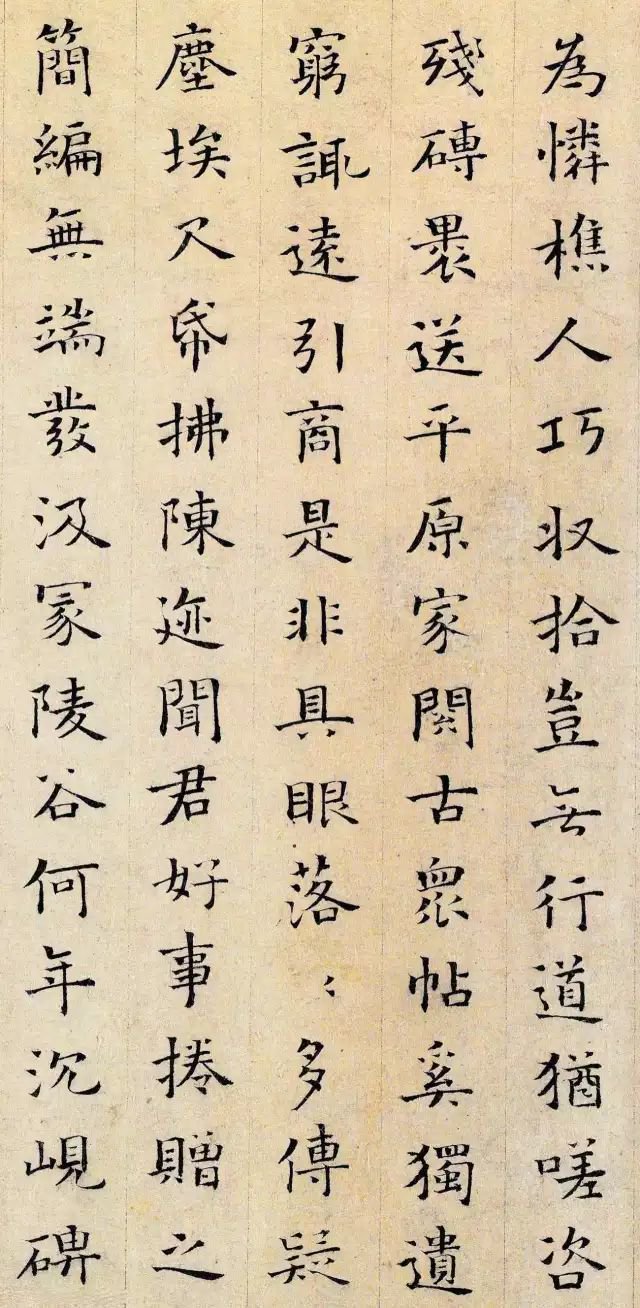 為憐樵人巧収拾豈无行道猶嗟咨
殘磚褁送平原家閱古衆帖奚獨遺
窮諏遠引商是非具眼落〻多傳疑
塵埃尺帋拂陳迹聞君好事捲贈之
簡編無端發汲冢陵谷何年沉峴碑